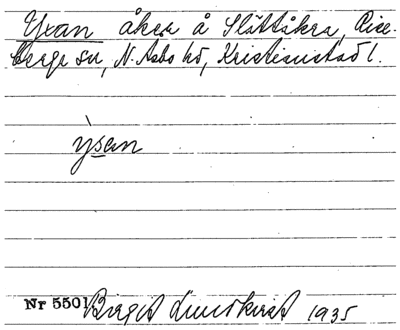 Yxan åker å Slättåkra, Rise-
berga sn, N. Åsbo hd, Kristianstad l.
ỳsan
Nr 5501 Birgit Lundkvist 1935